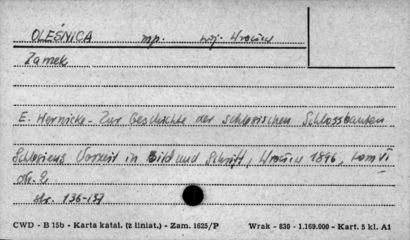 OLEŚNICA mp. woj. Wrocław
Zamek
E. Hernicke - Zur Geschichte der schlesischen Schlossbauten
Schlesiens Vorzeit in Bild und Schrift, Wrocław 1896, tom VI
str. 136-157
CWD - B 15b - Karta katal. (z liniat.) - Zam. 1625/P Wrak - 830 - 1.169.000 - Kart. 5 kl. A1